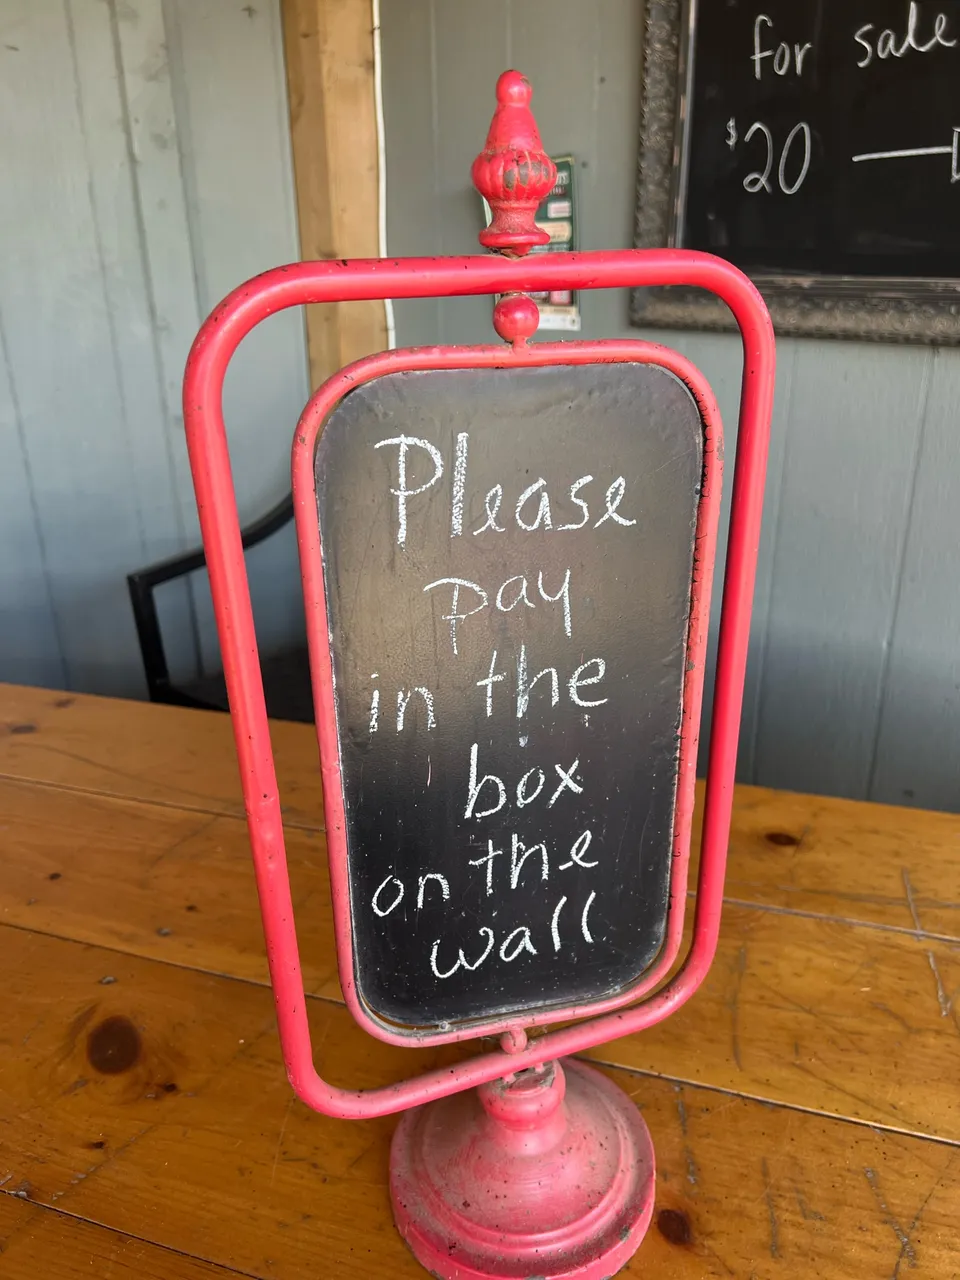 for sale
$20 —
Please
pay
in the
box
on the
wall